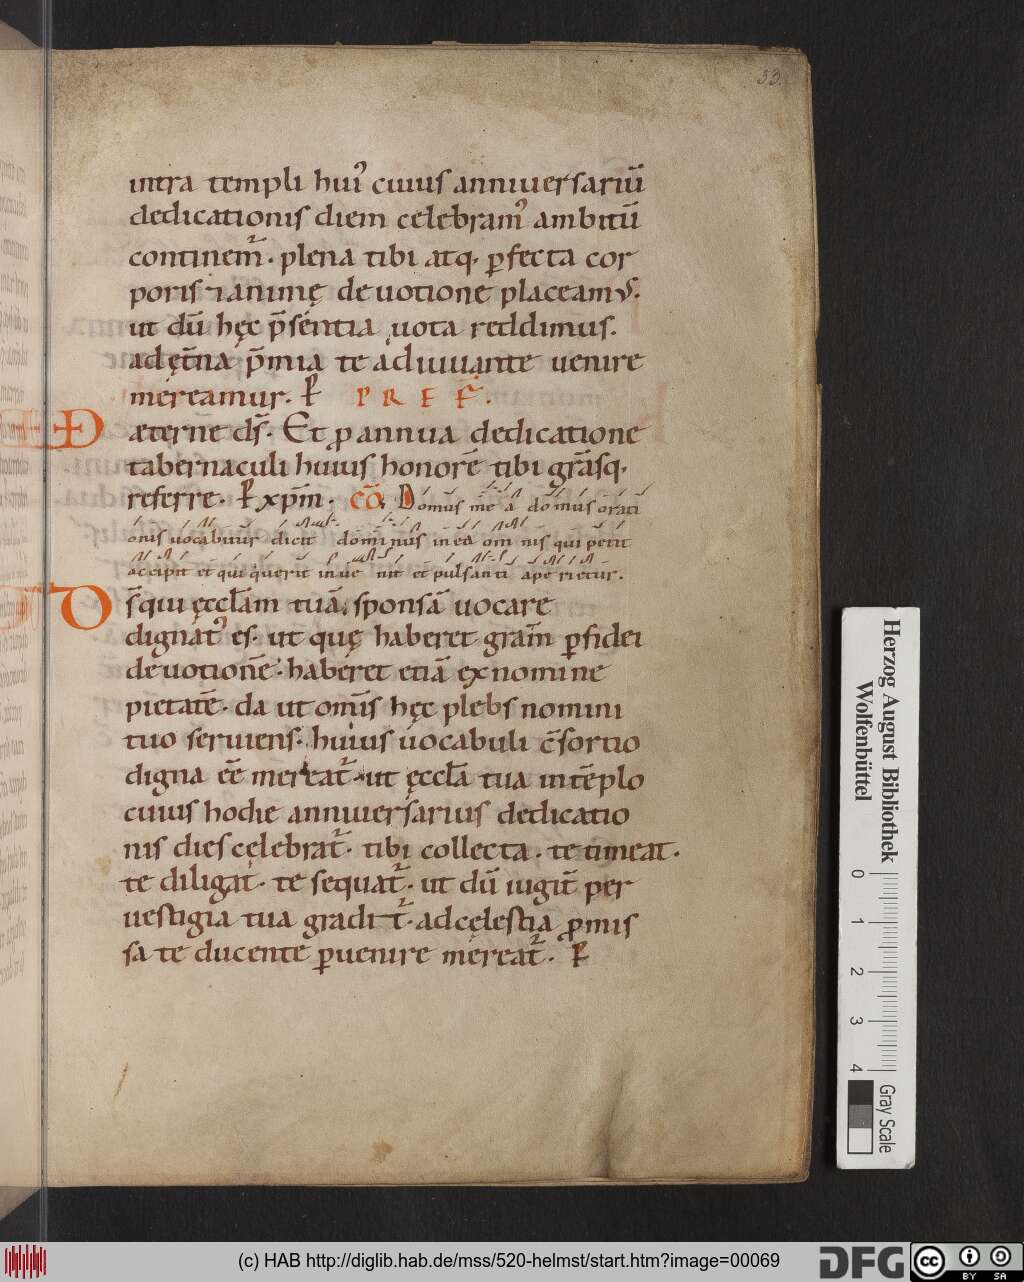 33.
intra templi huiꝰ cuius anniuersariū
dedicationis diem celebramꝰ ambitū
continem̄. plena tibi atq. ꝑfecta cor
poris ⁊ animę deuotione placeamus.
ut dū hęc p̄sentia uota reddimus.
ad ęt̄na p̄mia te adiuuante uenire
mereamur. P PREF̄.
D
æterne ds̄. Et ꝓ annua dedicatione
tabernaculi huius honorē tibi grā̄sq.
referre. P xp̄m. CŌ. Domus mea domus orati
onis uocabitur dicit dominus in ea omnis qui petit
accipit et qui querit inuenit et pulsanti aperietur.
D
s̄ qui ęccl̄am tuā sponsā uocare
dignatꝰ es. ut quę haberet grām̄ ꝑ fidei
deuotionē. haberet etiā ex nomine
pietatē. da ut om̄s hęc plebs nomini
tuo seruiens. huius uocabuli c̄sortio
digna eē mereat̄. ut ęccl̄a tua in tēplo
cuius hodie anniuersarius dedicatio
nis dies celebrat̄. tibi collecta. te timeat.
te diligat. te sequat̄. ut dū iugit̄ per
uestigia tua gradit̄. ad cęlestia ꝓmis
sa te ducente ꝑuenire mereat̄. P
Herzog August Bibliothek
Wolfenbüttel
0 1 2 3 4
Gray Scale
(c) HAB http://diglib.hab.de/mss/520-helmst/start.htm?image=00069
DFG
cc BY SA